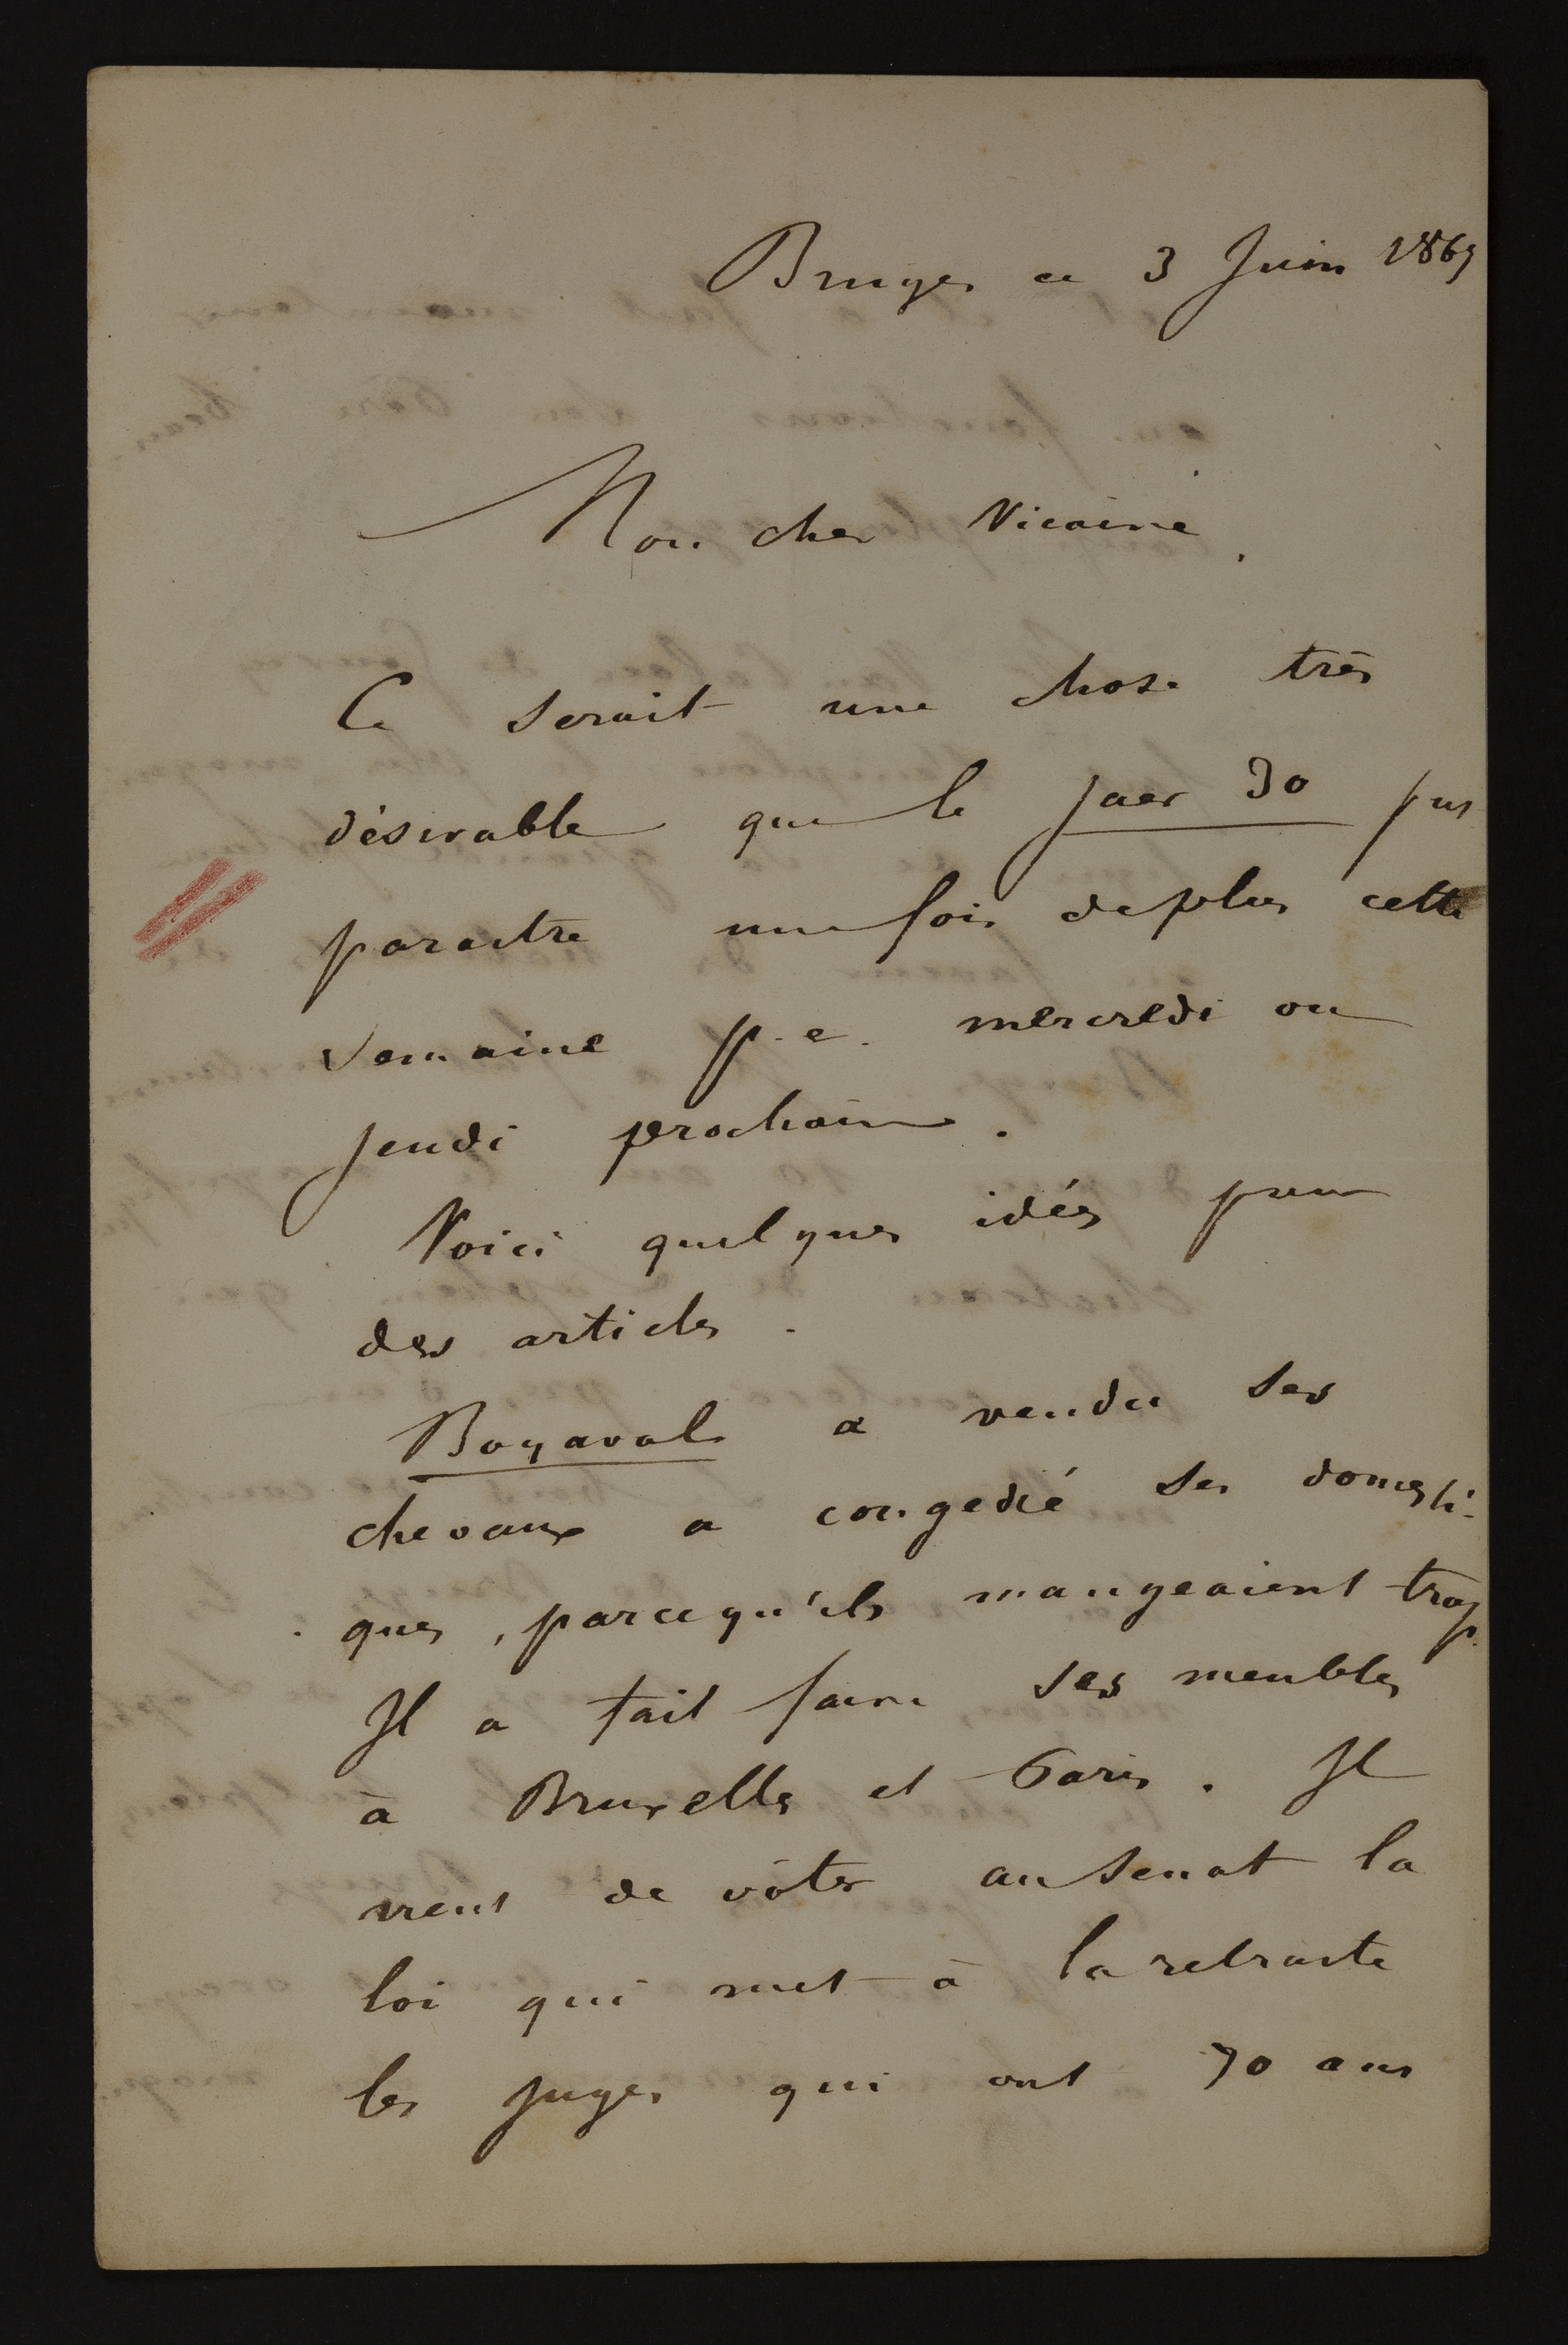 Bruges ce 3 Juin 1867
Mon cher Vicaire,
Ce serait une chose très
désirable que le jaer 30 pus
paraitre une fois de plus cette
semaine p. e. mercredi ou
jeudi prochain.
Voici quelques idés pour
des articles.
Boyaval a vendu ses
chevaux a congedié ses domesti-
ques, parcequ'ils mangeaient trop.
Il a fait faire ses meubles
à Bruxelles et Paris. Il
vient de vôter au Senat la
loi qui met à la retraite
les juges qui ont 70 ans